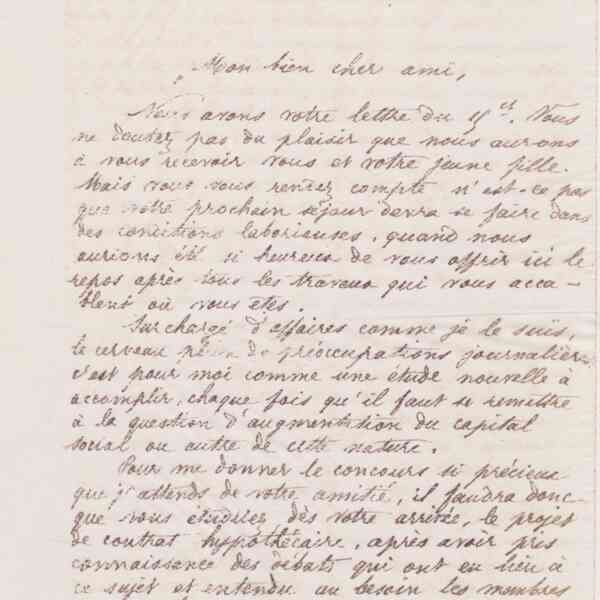 Mon bien cher ami,
Nous avons votre lettre du 15 ct. Vous
ne doutez pas du plaisir que nous aurons
à vous recevoir vous et votre jeune fille.
Mais vous vous rendez compte n'est-ce pas
que votre prochain séjour devra se faire dans
des conditions laborieuses, quand nous
aurions été si heureux de vous offrir ici le
repos après tous les travaux qui vous acca-
blent où vous êtes.
Surchargé d'affaires comme je le suis,
le cerveau plein de préoccupations journalières
c'est pour moi comme une étude nouvelle à
accomplir, chaque fois qu'il faut se remettre
à la question d'augmentation du capital
social ou autre de cette nature.
Pour me donner le concours si précieux
que j'attends de votre amitié, il faudra donc
que vous étudiiez dès votre arrivée, le projet
de contrat hypothécaire, après avoir pris
connaissance des débats qui ont eu lieu à
ce sujet et entendu au besoin les membres